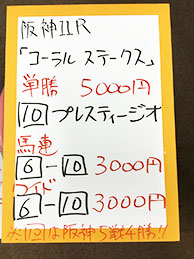 阪神11R
「コーラルステークス」
単勝 5000円
10 プレスティージオ
馬連
6-10 3000円
ワイド
6-10 3000円